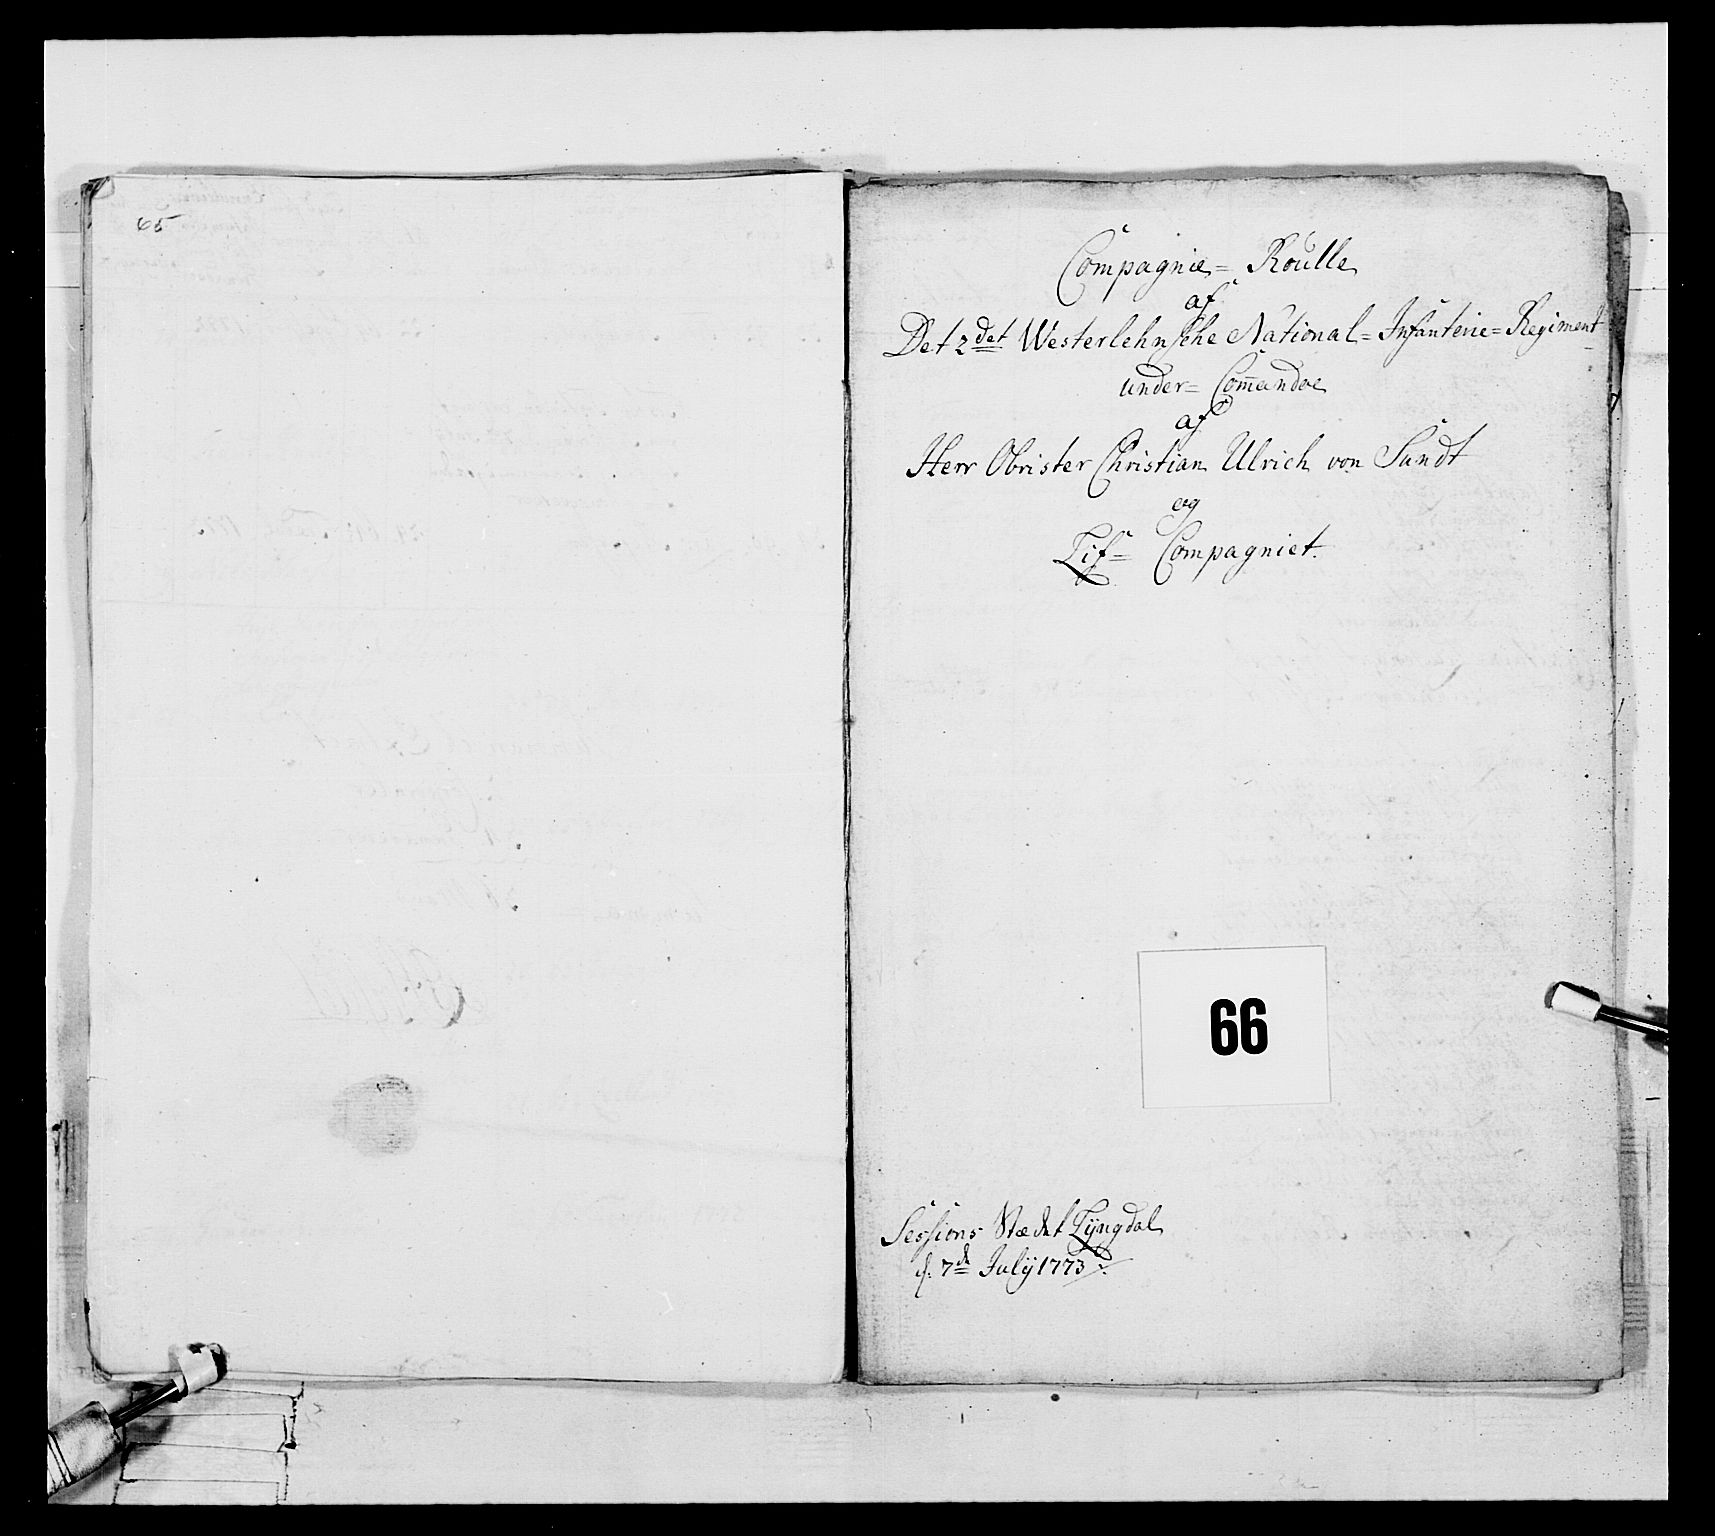 65
Compagnie= Roulle
af
Det 2det Westerlehnsche National= Infanterie= Regiment
under= Com̅andoe
af
Herr Obrister Christian Ulrich von Sundt
og
Lif= Compagniet.
66
Sessions Stædet Lyngdal
d: 7de Julÿ 1773